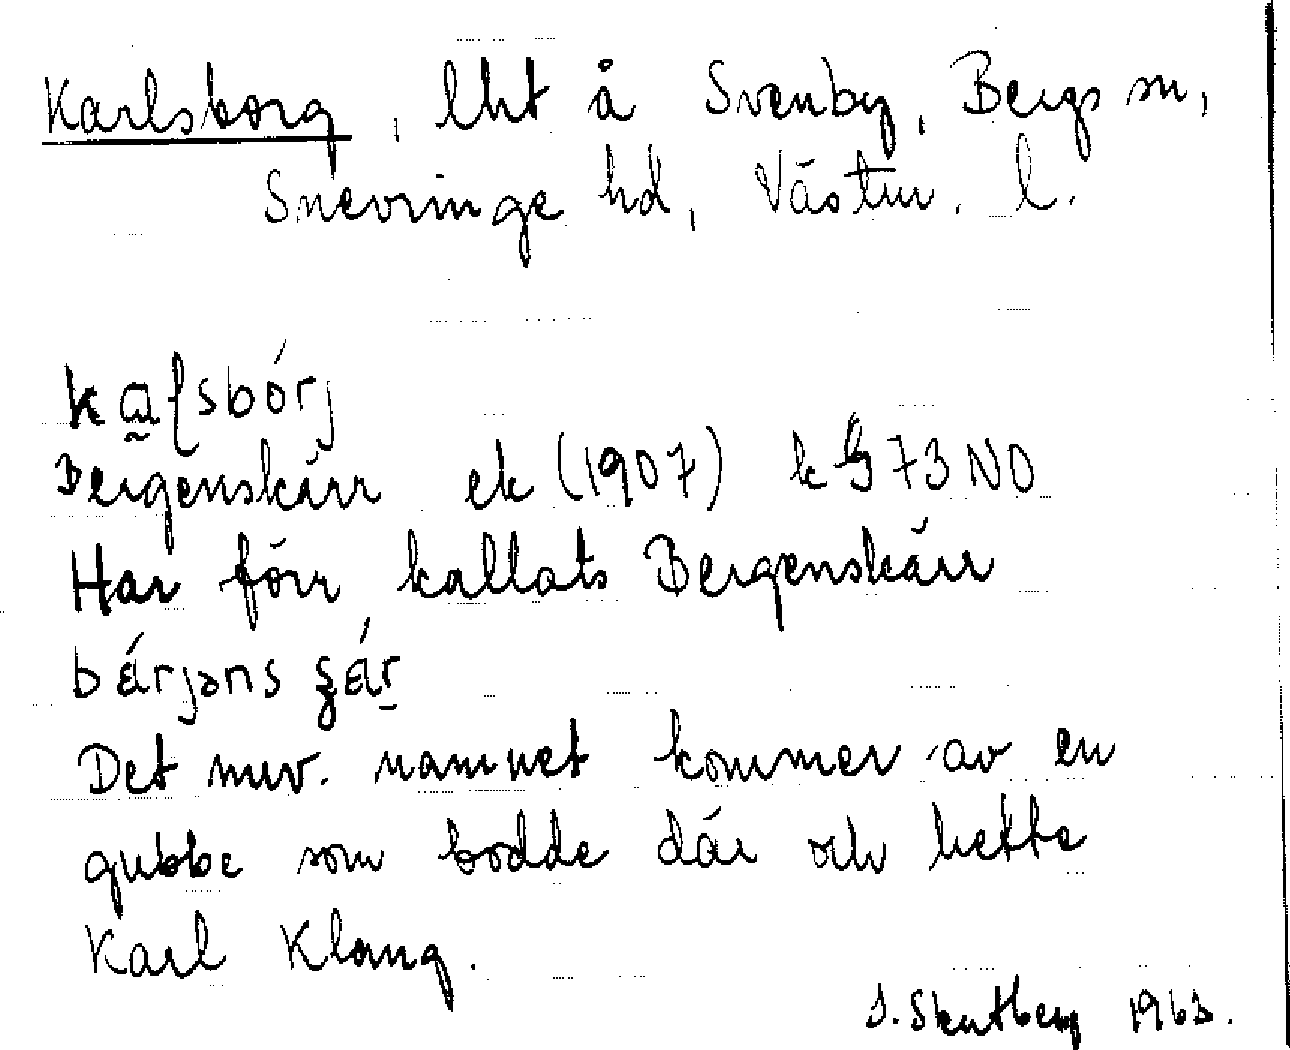 Karlsborg, lht å Svenby, Bergs sn,
Snevringe hd, Västm. l.
Bergenskärr ek (1907) k G 73 NO
Har förr kallats Bergenskärr
Det nuv. namnet kommer av en
gubbe som bodde där och hette
Karl Klang.
1963.